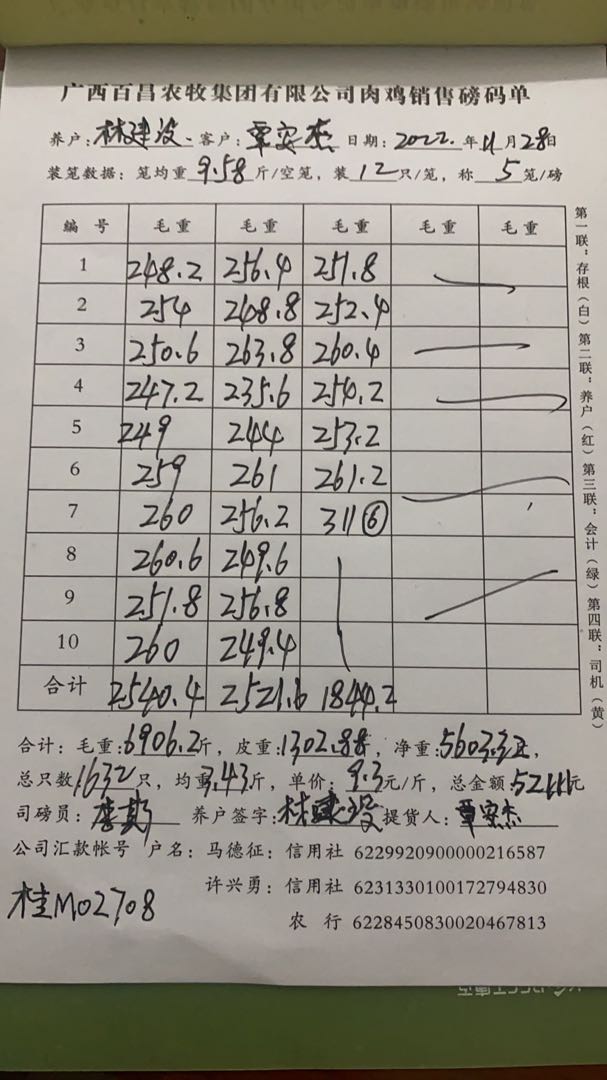 广西百昌农牧集团有限公司肉鸡销售磅码单
养户:林建设 客户:覃安杰 日期:2022年11月28日
装笼数据:笼均重9.58斤/空笼,装12只/笼,称5笼/磅
编号 毛重 毛重 毛重 毛重 毛重
1 248.2 256.4 251.8
2 254 248.8 252.4
3 250.6 263.8 260.4
4 247.2 235.6 254.2
5 249 244 253.2
6 259 261 261.2
7 260 256.2 311⑥
8 260.6 249.6
9 251.8 256.8
10 260 249.4
合计 2540.4 2521.6 1844.2
合计:毛重:6906.2斤,皮重:1302.88斤,净重:5603.3斤,
总只数1632只,均重3.43斤,单价:9.3元/斤,总金额:元
司磅员: 养户签字:林建设 提货人:覃安杰
公司汇款帐号 户名:马德征:信用社 6229920900000216587
许兴勇:信用社 6231330100172794830
农 行 6228450830020467813
桂M02708
第一联:存根(白)第二联:养户(红)第三联:会计(绿)第四联:司机(黄)